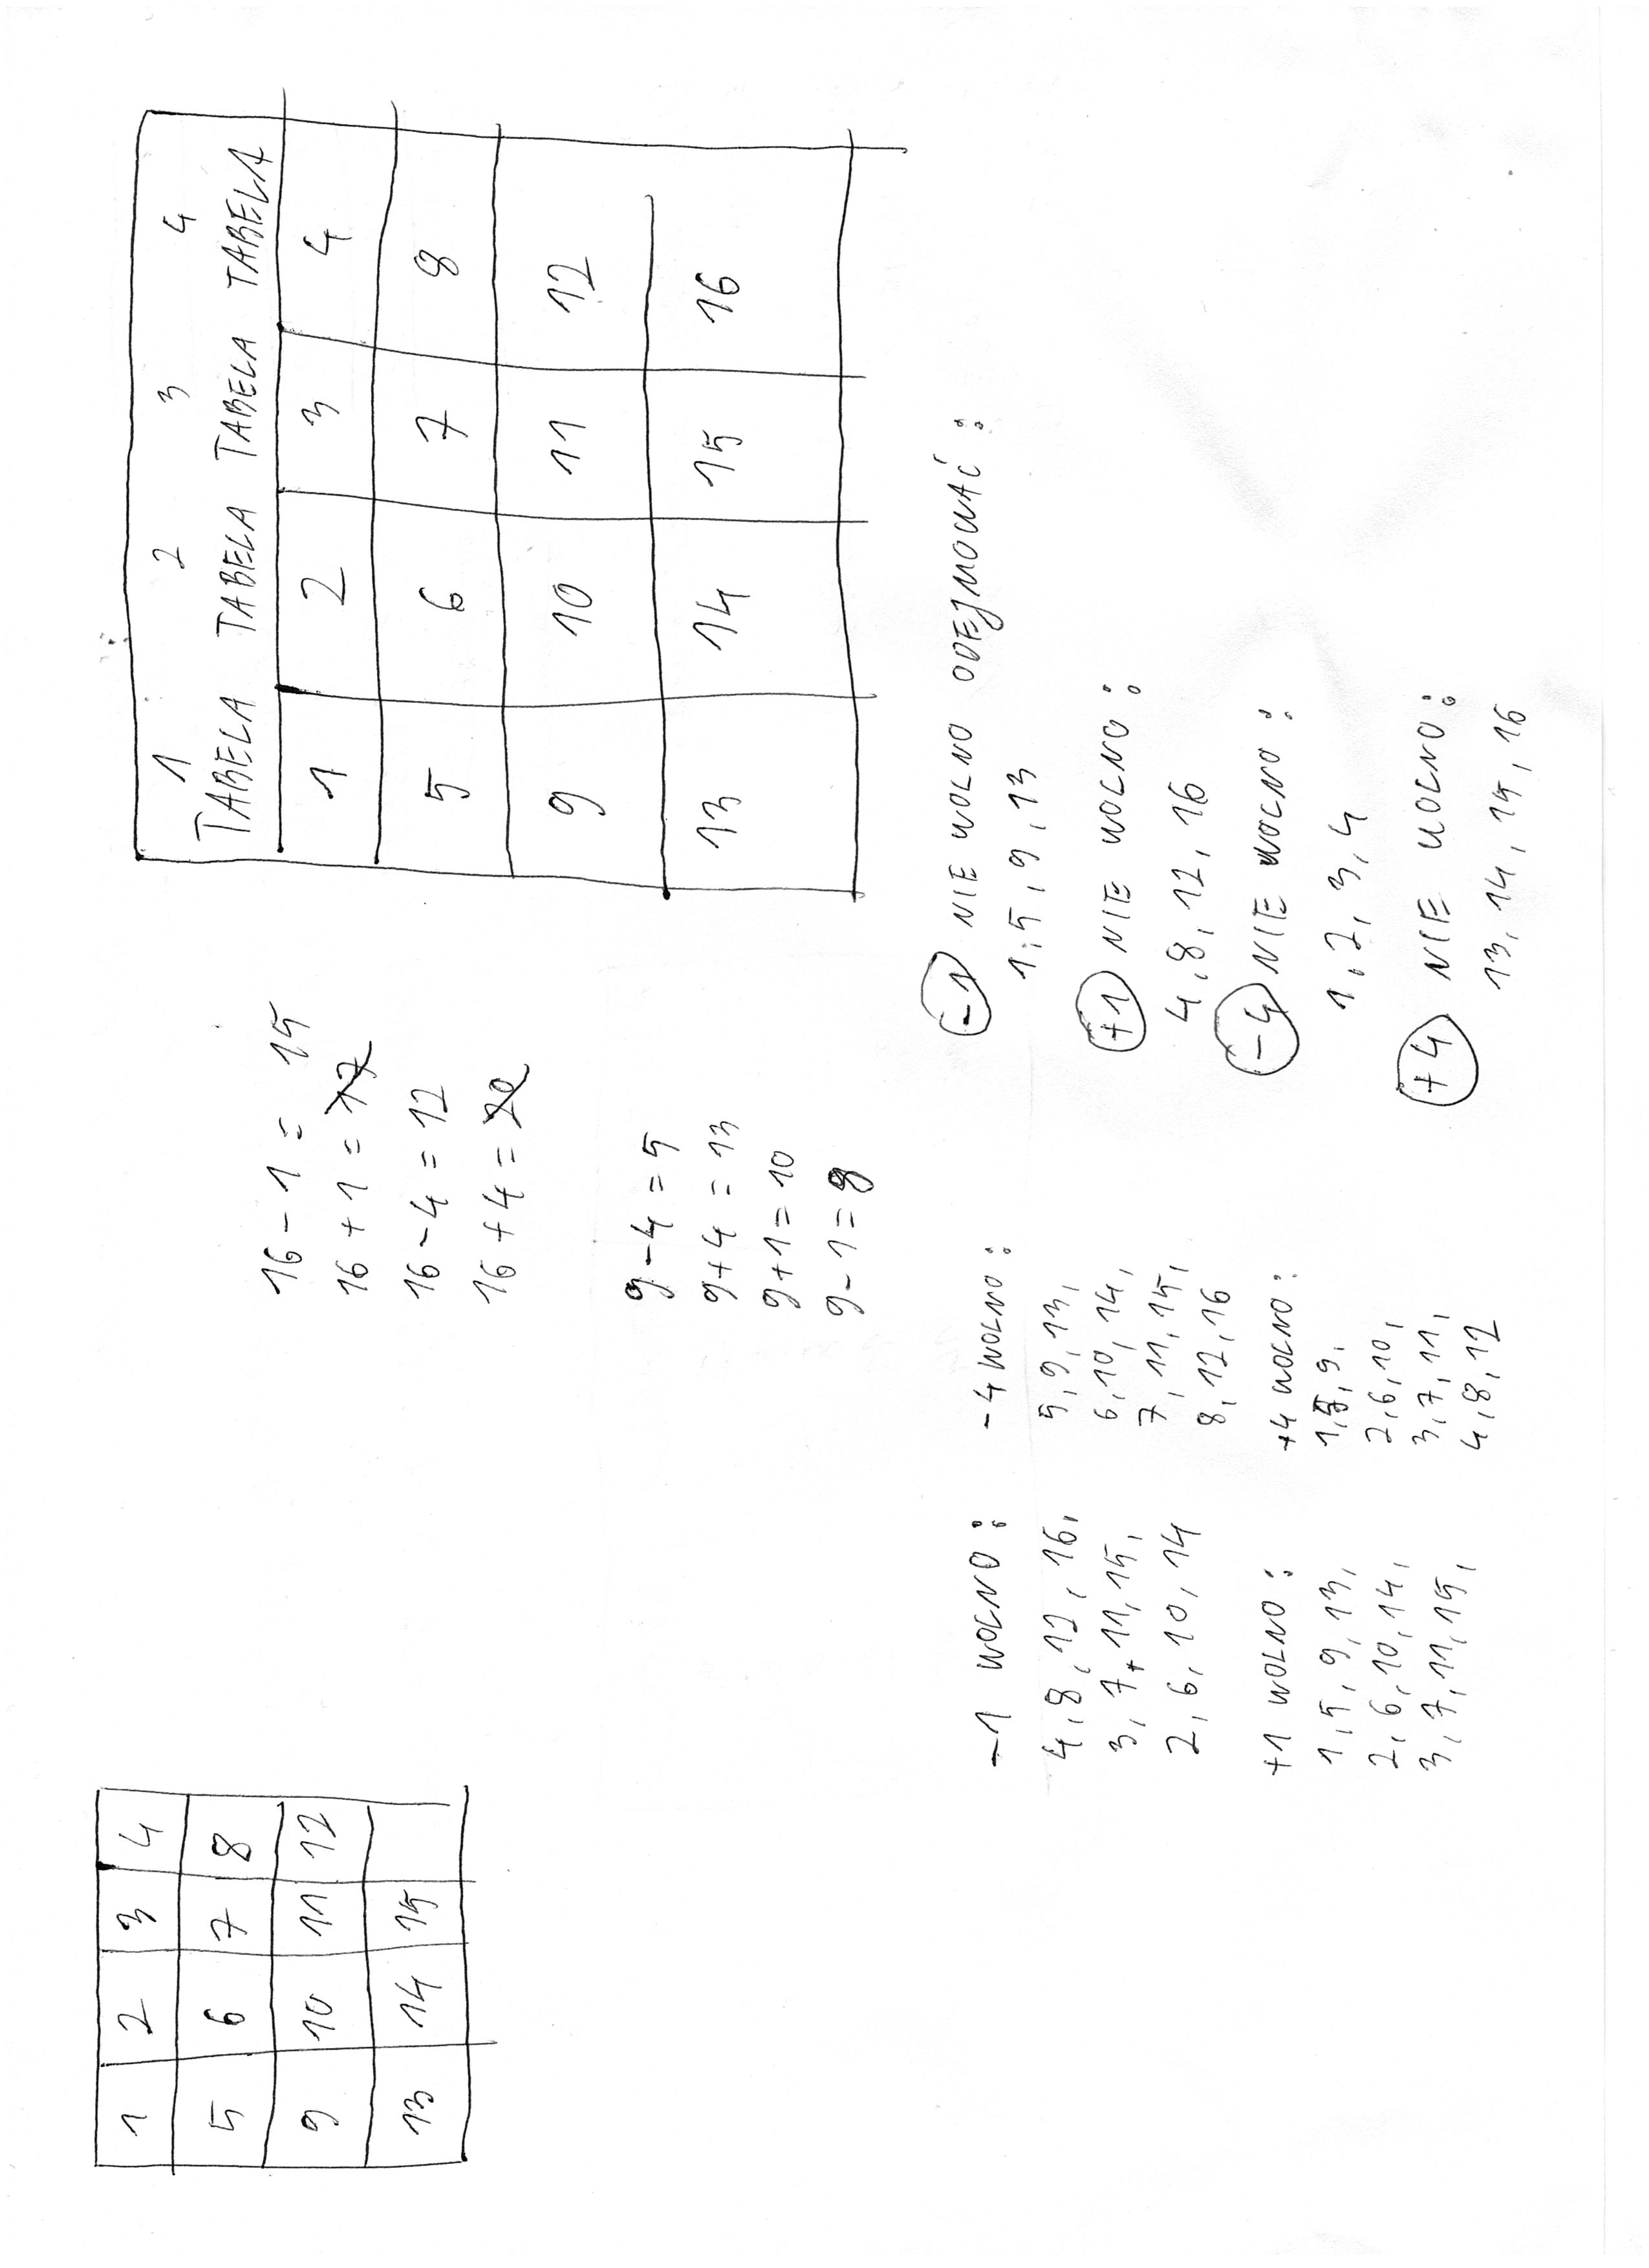 1 2 3 4
5 6 7 8
9 10 11 12
13 14 15
16 - 1 = 15
16 + 1 = 17
16 - 4 = 12
16 + 4 = 20
9 - 4 = 5
9 + 4 = 13
9 + 1 = 10
9 - 1 = 8
1 2 3 4
TABELA TABELA TABELA TABELA
1 2 3 4
5 6 7 8
9 10 11 12
13 14 15 16
-1 WOLNO:
4, 8, 12, 16,
3, 7, 11, 15,
2, 6, 10, 14
-4 WOLNO:
5, 9, 13,
6, 10, 14,
7, 11, 15,
8, 12, 16
+1 WOLNO:
1, 5, 9, 13,
2, 6, 10, 14,
3, 7, 11, 15,
+4 WOLNO:
1, 5, 9,
2, 6, 10,
3, 7, 11,
4, 8, 12
-1 NIE WOLNO ODEJMOWAĆ:
1, 5, 9, 13
+1 NIE WOLNO:
4, 8, 12, 16
-4 NIE WOLNO:
1, 2, 3, 4
+4 NIE WOLNO:
13, 14, 15, 16